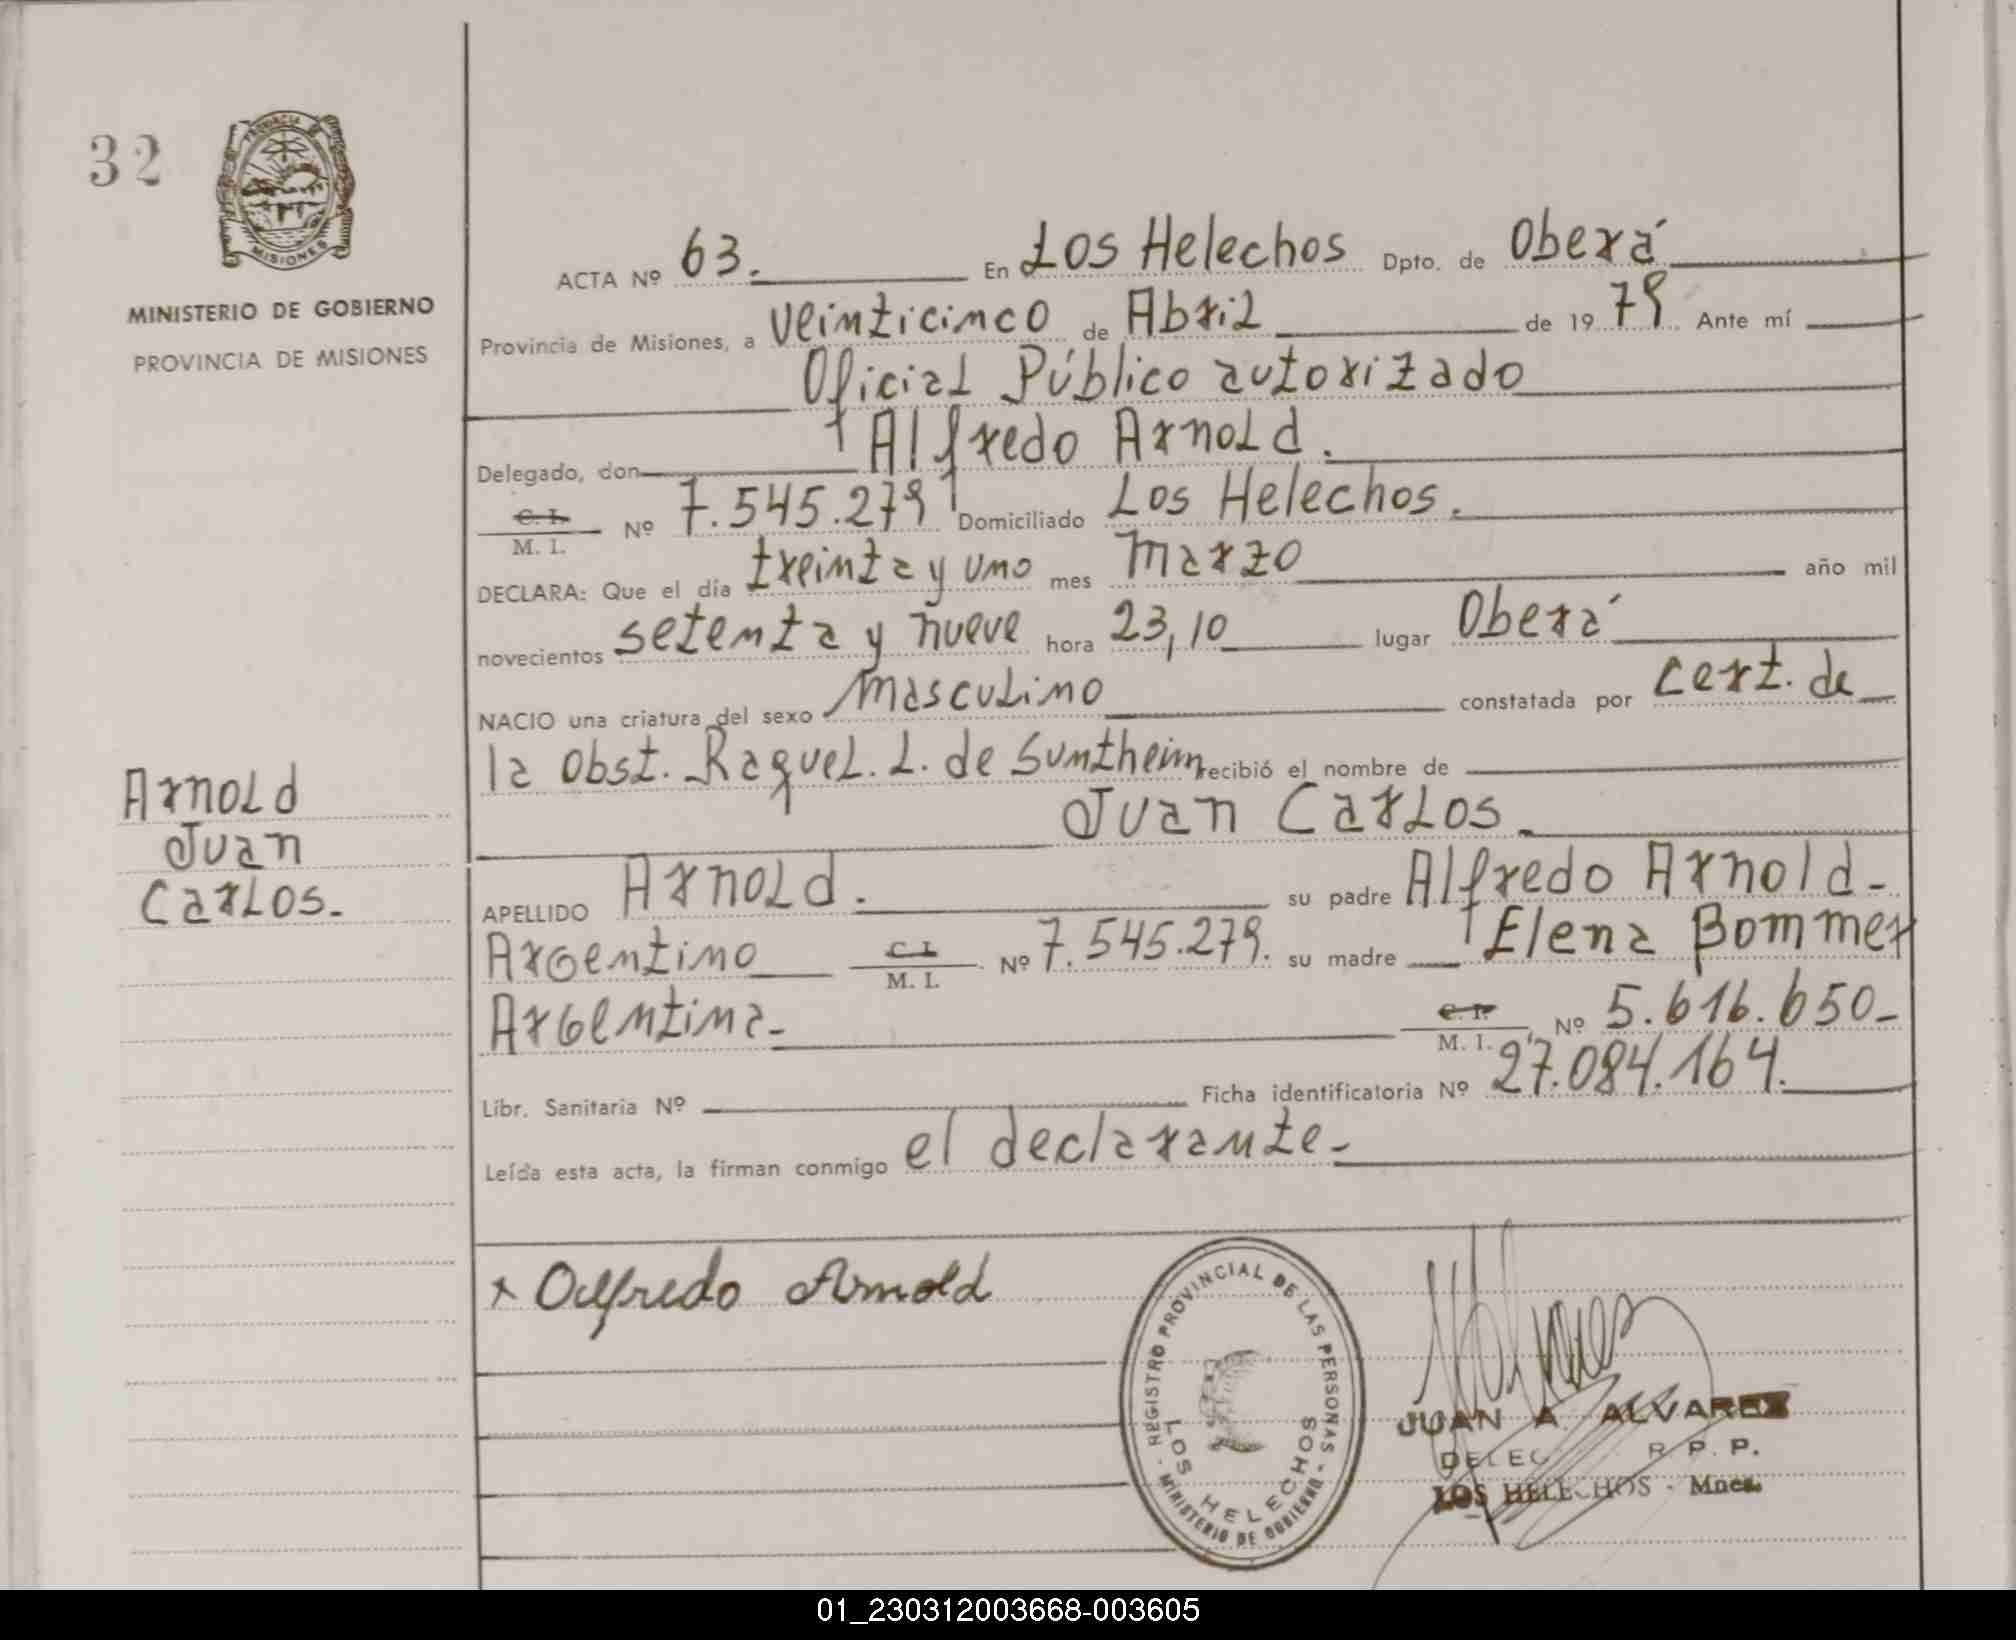 32
PROVINCIA DE
MISIONES
MINISTERIO DE GOBIERNO
PROVINCIA DE MISIONES
ACTA Nº 63. En Los Helechos Dpto. de Oberá
Provincia de Misiones, a veinticinco de Abril de 1979 Ante mí
Oficial Público autorizado
Delegado, don Alfredo Arnold.
C. I.
M. I. Nº 7.545.279 Domiciliado Los Helechos.
DECLARA: Que el día treinta y uno mes Marzo año mil
novecientos setenta y nueve hora 23,10 lugar Oberá
NACIO una criatura del sexo Masculino constatada por Cert. de
la obst. Raquel. L. de Suntheim recibió el nombre de
Juan Carlos.
Arnold
Juan
Carlos.
APELLIDO Arnold. su padre Alfredo Arnold-
Argentino C. I.
M. I. Nº 7.545.279. su madre Elena Bommer
Argentina- C. I.
M. I. Nº 5.616.650-
Libr. Sanitaria Nº Ficha identificatoria Nº 27.084.164.
Leída esta acta, la firman conmigo el declarante-
x Alfredo Arnold
REGISTRO PROVINCIAL DE LAS PERSONAS
LOS HELECHOS
- MINISTERIO DE GOBIERNO -
JUAN A. ALVAREZ
R. P. P.
LOS HELECHOS - Mnes.
01_230312003668-003605